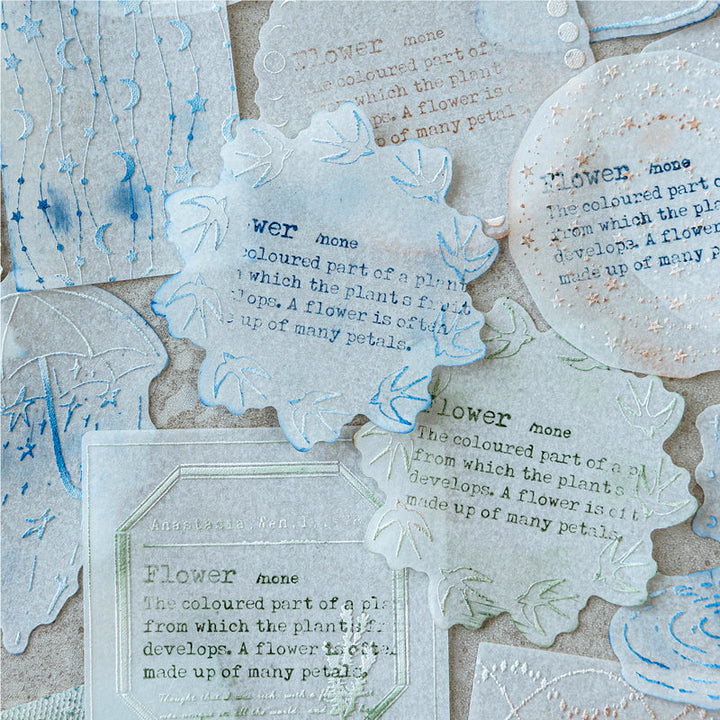 Flower /none
The coloured part of
which the plant
A flower is
of many petals
Flower /none
The coloured part o
from which the pla
develops. A flower
made up of many p
wer /none
coloured part of a plant
which the plant's fruit
lops. A flower is often
up of many petals.
Flower /none
The coloured part of a pl
from which the plants
develops. A flower is oft
made up of many petals.
Anastasia
Flower /none
The coloured part of a pla
from which the plants fr
develops. A flower is ofte
made up of many petals.
Thought that I was rich, with a flower
in all the world, and I